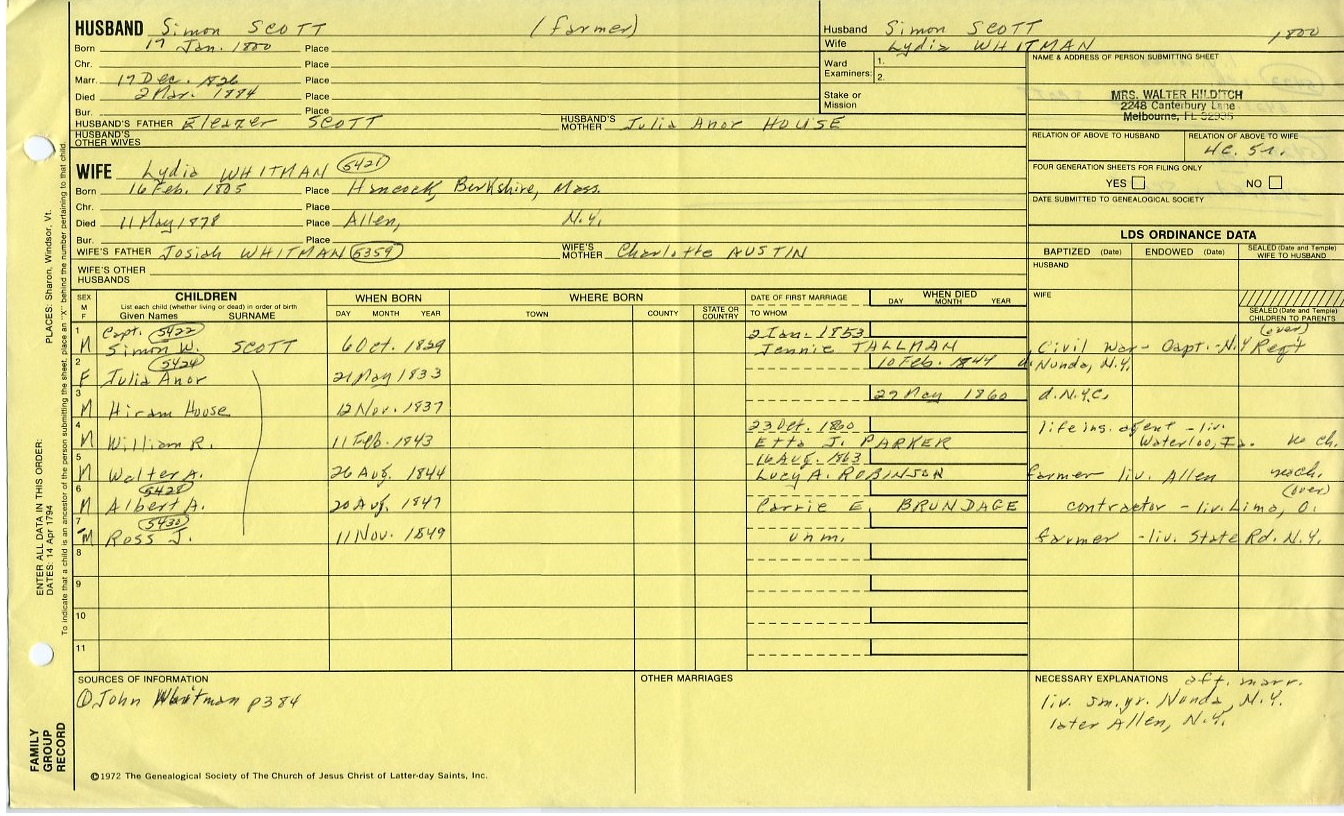 HUSBAND Simon SCOTT (farmer)
Born 17 Jan. 1800 Place
Chr. Place
Marr. 17 Dec. 1826 Place
Died 2 Mar. 1884 Place
Bur. Place
HUSBAND'S FATHER Eleazer SCOTT HUSBAND'S MOTHER Julia Anor HOUSE
HUSBAND'S OTHER WIVES
Husband Simon SCOTT 1800
Wife Lydia WHITMAN
Ward Examiners: 1. 2.
Stake or Mission
NAME & ADDRESS OF PERSON SUBMITTING SHEET
MRS. WALTER HILDITCH
2248 Canterbury Lane
Melbourne, FL 32935
RELATION OF ABOVE TO HUSBAND RELATION OF ABOVE TO WIFE
4c. 5r.
FOUR GENERATION SHEETS FOR FILING ONLY
YES NO
DATE SUBMITTED TO GENEALOGICAL SOCIETY
WIFE Lydia WHITMAN 5421
Born 16 Feb. 1805 Place Hancock, Berkshire, Mass.
Chr. Place
Died 11 May 1878 Place Allen, N.Y.
Bur. Place
WIFE'S FATHER Josiah WHITMAN 5359 WIFE'S MOTHER Charlotte AUSTIN
WIFE'S OTHER HUSBANDS
LDS ORDINANCE DATA
BAPTIZED (Date) ENDOWED (Date) SEALED (Date and Temple) WIFE TO HUSBAND
HUSBAND
WIFE
SEALED (Date and Temple) CHILDREN TO PARENTS
SEX M F CHILDREN List each child (whether living or dead) in order of birth Given Names SURNAME
WHEN BORN DAY MONTH YEAR
WHERE BORN TOWN COUNTY STATE OR COUNTRY
DATE OF FIRST MARRIAGE TO WHOM
WHEN DIED DAY MONTH YEAR
1 Capt. 5422 2 Jan. 1853 (over)
M Simon W. SCOTT 6 Oct. 1829 Jennie TALLMAN Civil War - Capt. - N.Y Reg't
2 5424 10 Feb. 1844 d. Nunda, N.Y.
F Julia Anor 21 May 1833
3 27 May 1860 d. N.Y.C.
M Hiram House 12 Nov. 1837
4 23 Oct. 1860 life ins. agent - liv.
M William R. 11 Feb. 1843 Etta J. PARKER Waterloo, Ia. no ch.
5 16 Aug. 1863
M Walter A. 26 Aug. 1844 Lucy A. ROBINSON farmer liv. Allen no ch.
6 5428 (over)
M Albert A. 20 Aug. 1847 Carrie E. BRUNDAGE contractor - liv. Lima, O.
7 5430
M Ross J. 11 Nov. 1849 unm. farmer - liv. State Rd. N.Y.
8
9
10
11
SOURCES OF INFORMATION
① John Whitman p384
OTHER MARRIAGES
NECESSARY EXPLANATIONS aft. marr.
liv. sm. yr. Nunda, N.Y.
later Allen, N.Y.
©1972 The Genealogical Society of The Church of Jesus Christ of Latter-day Saints, Inc.
FAMILY GROUP RECORD
ENTER ALL DATA IN THIS ORDER: PLACES: Sharon, Windsor, Vt.
DATES: 14 Apr 1794
To indicate that a child is an ancestor of the person submitting the sheet, place an "X" behind the number pertaining to that child.